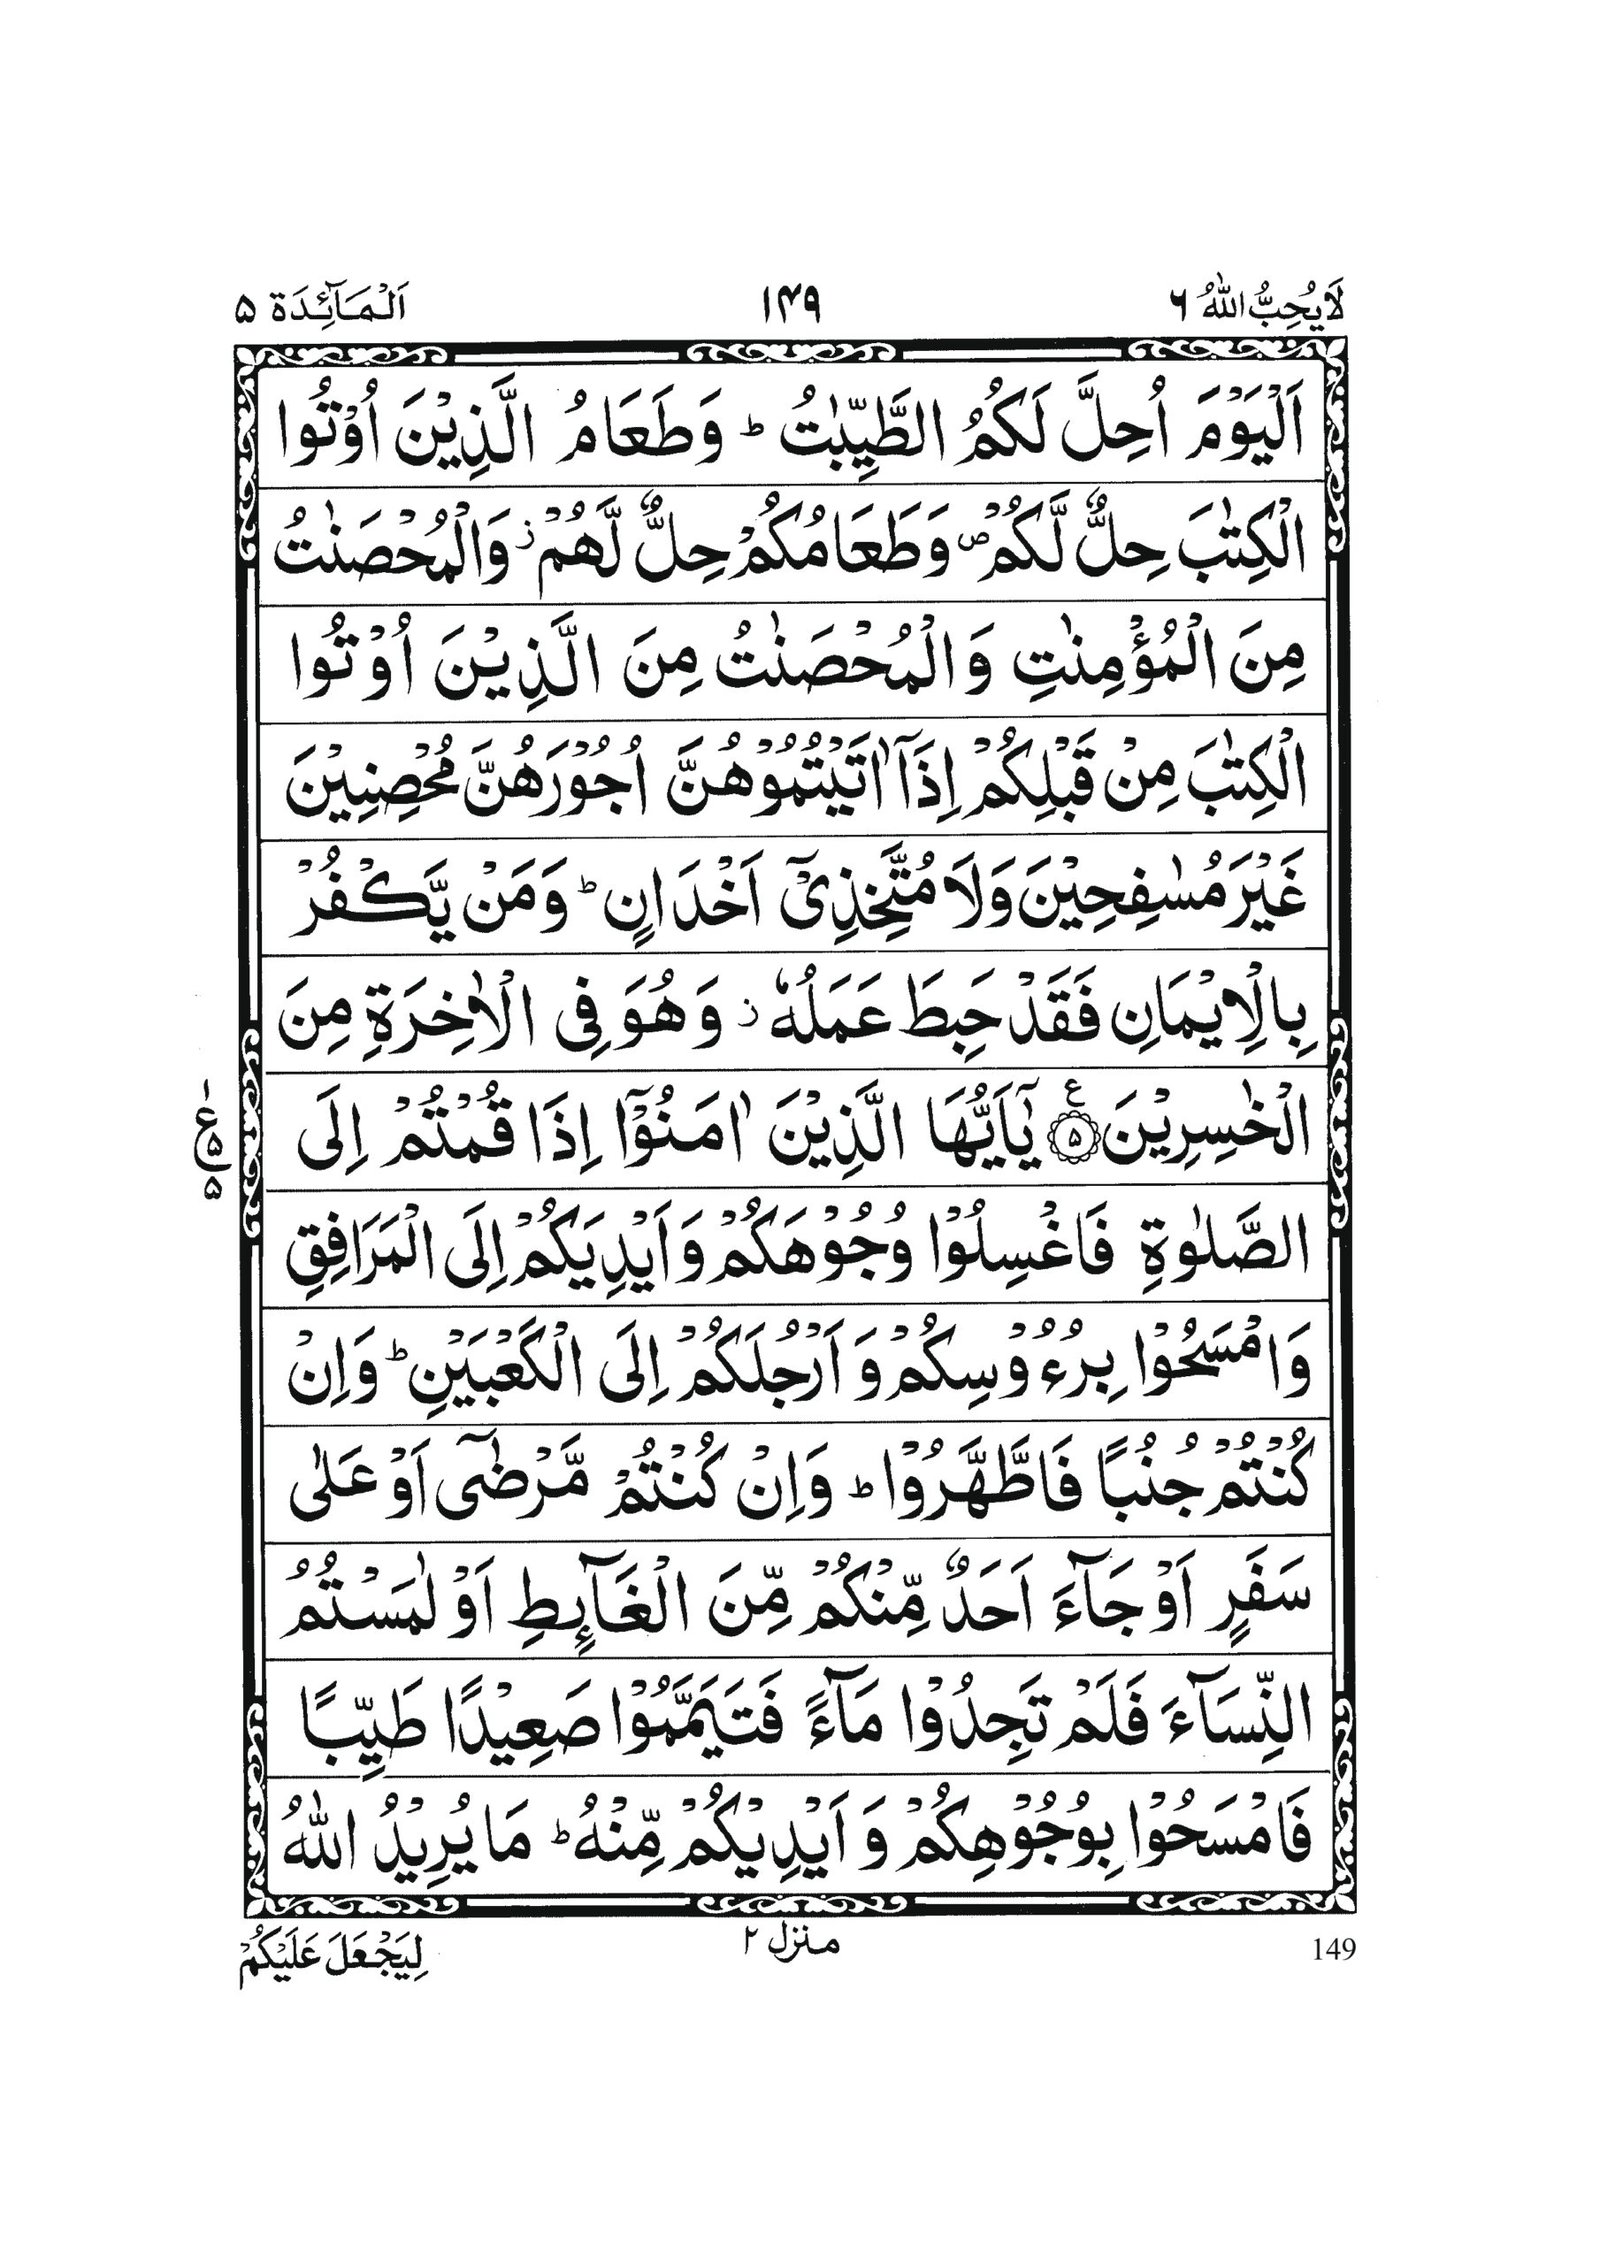 لَايُحِبُّ اللّٰهُ ٦ ١٤٩ اَلْمَآئِدَة ٥
اَلْيَوْمَ اُحِلَّ لَكُمُ الطَّيِّبٰتُ ؕ وَطَعَامُ الَّذِيْنَ اُوْتُوا
الْكِتٰبَ حِلٌّ لَّكُمْ ۪ وَطَعَامُكُمْ حِلٌّ لَّهُمْ ز وَالْمُحْصَنٰتُ
مِنَ الْمُؤْمِنٰتِ وَالْمُحْصَنٰتُ مِنَ الَّذِيْنَ اُوْتُوا
الْكِتٰبَ مِنْ قَبْلِكُمْ اِذَاۤ اٰتَيْتُمُوْهُنَّ اُجُوْرَهُنَّ مُحْصِنِيْنَ
غَيْرَ مُسٰفِحِيْنَ وَلَا مُتَّخِذِيْۤ اَخْدَانٍ ؕ وَمَنْ يَّكْفُرْ
بِالْاِيْمَانِ فَقَدْ حَبِطَ عَمَلُهٗ ز وَهُوَ فِي الْاٰخِرَةِ مِنَ
الْخٰسِرِيْنَ ۝٥ ع يٰۤاَيُّهَا الَّذِيْنَ اٰمَنُوْۤا اِذَا قُمْتُمْ اِلَى
الصَّلٰوةِ فَاغْسِلُوْا وُجُوْهَكُمْ وَاَيْدِيَكُمْ اِلَى الْمَرَافِقِ
وَامْسَحُوْا بِرُءُوْسِكُمْ وَاَرْجُلَكُمْ اِلَى الْكَعْبَيْنِ ؕ وَاِنْ
كُنْتُمْ جُنُبًا فَاطَّهَّرُوْا ؕ وَاِنْ كُنْتُمْ مَّرْضٰۤى اَوْ عَلٰى
سَفَرٍ اَوْ جَآءَ اَحَدٌ مِّنْكُمْ مِّنَ الْغَآئِطِ اَوْ لٰمَسْتُمُ
النِّسَآءَ فَلَمْ تَجِدُوْا مَآءً فَتَيَمَّمُوْا صَعِيْدًا طَيِّبًا
فَامْسَحُوْا بِوُجُوْهِكُمْ وَاَيْدِيْكُمْ مِّنْهُ ؕ مَا يُرِيْدُ اللّٰهُ
149 منزل ٢ لِيَجْعَلَ عَلَيْكُمْ